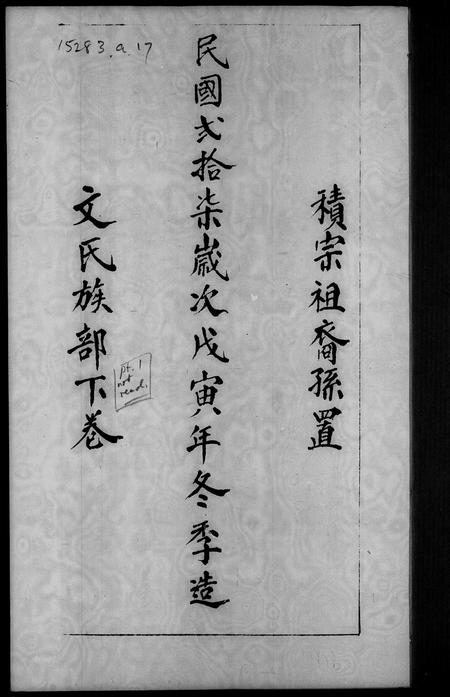 15283.a.17
積宗祖裔孫置
民國弍拾柒歲次戊寅年冬季造
文氏族部下巻
pt. 1
not
read.